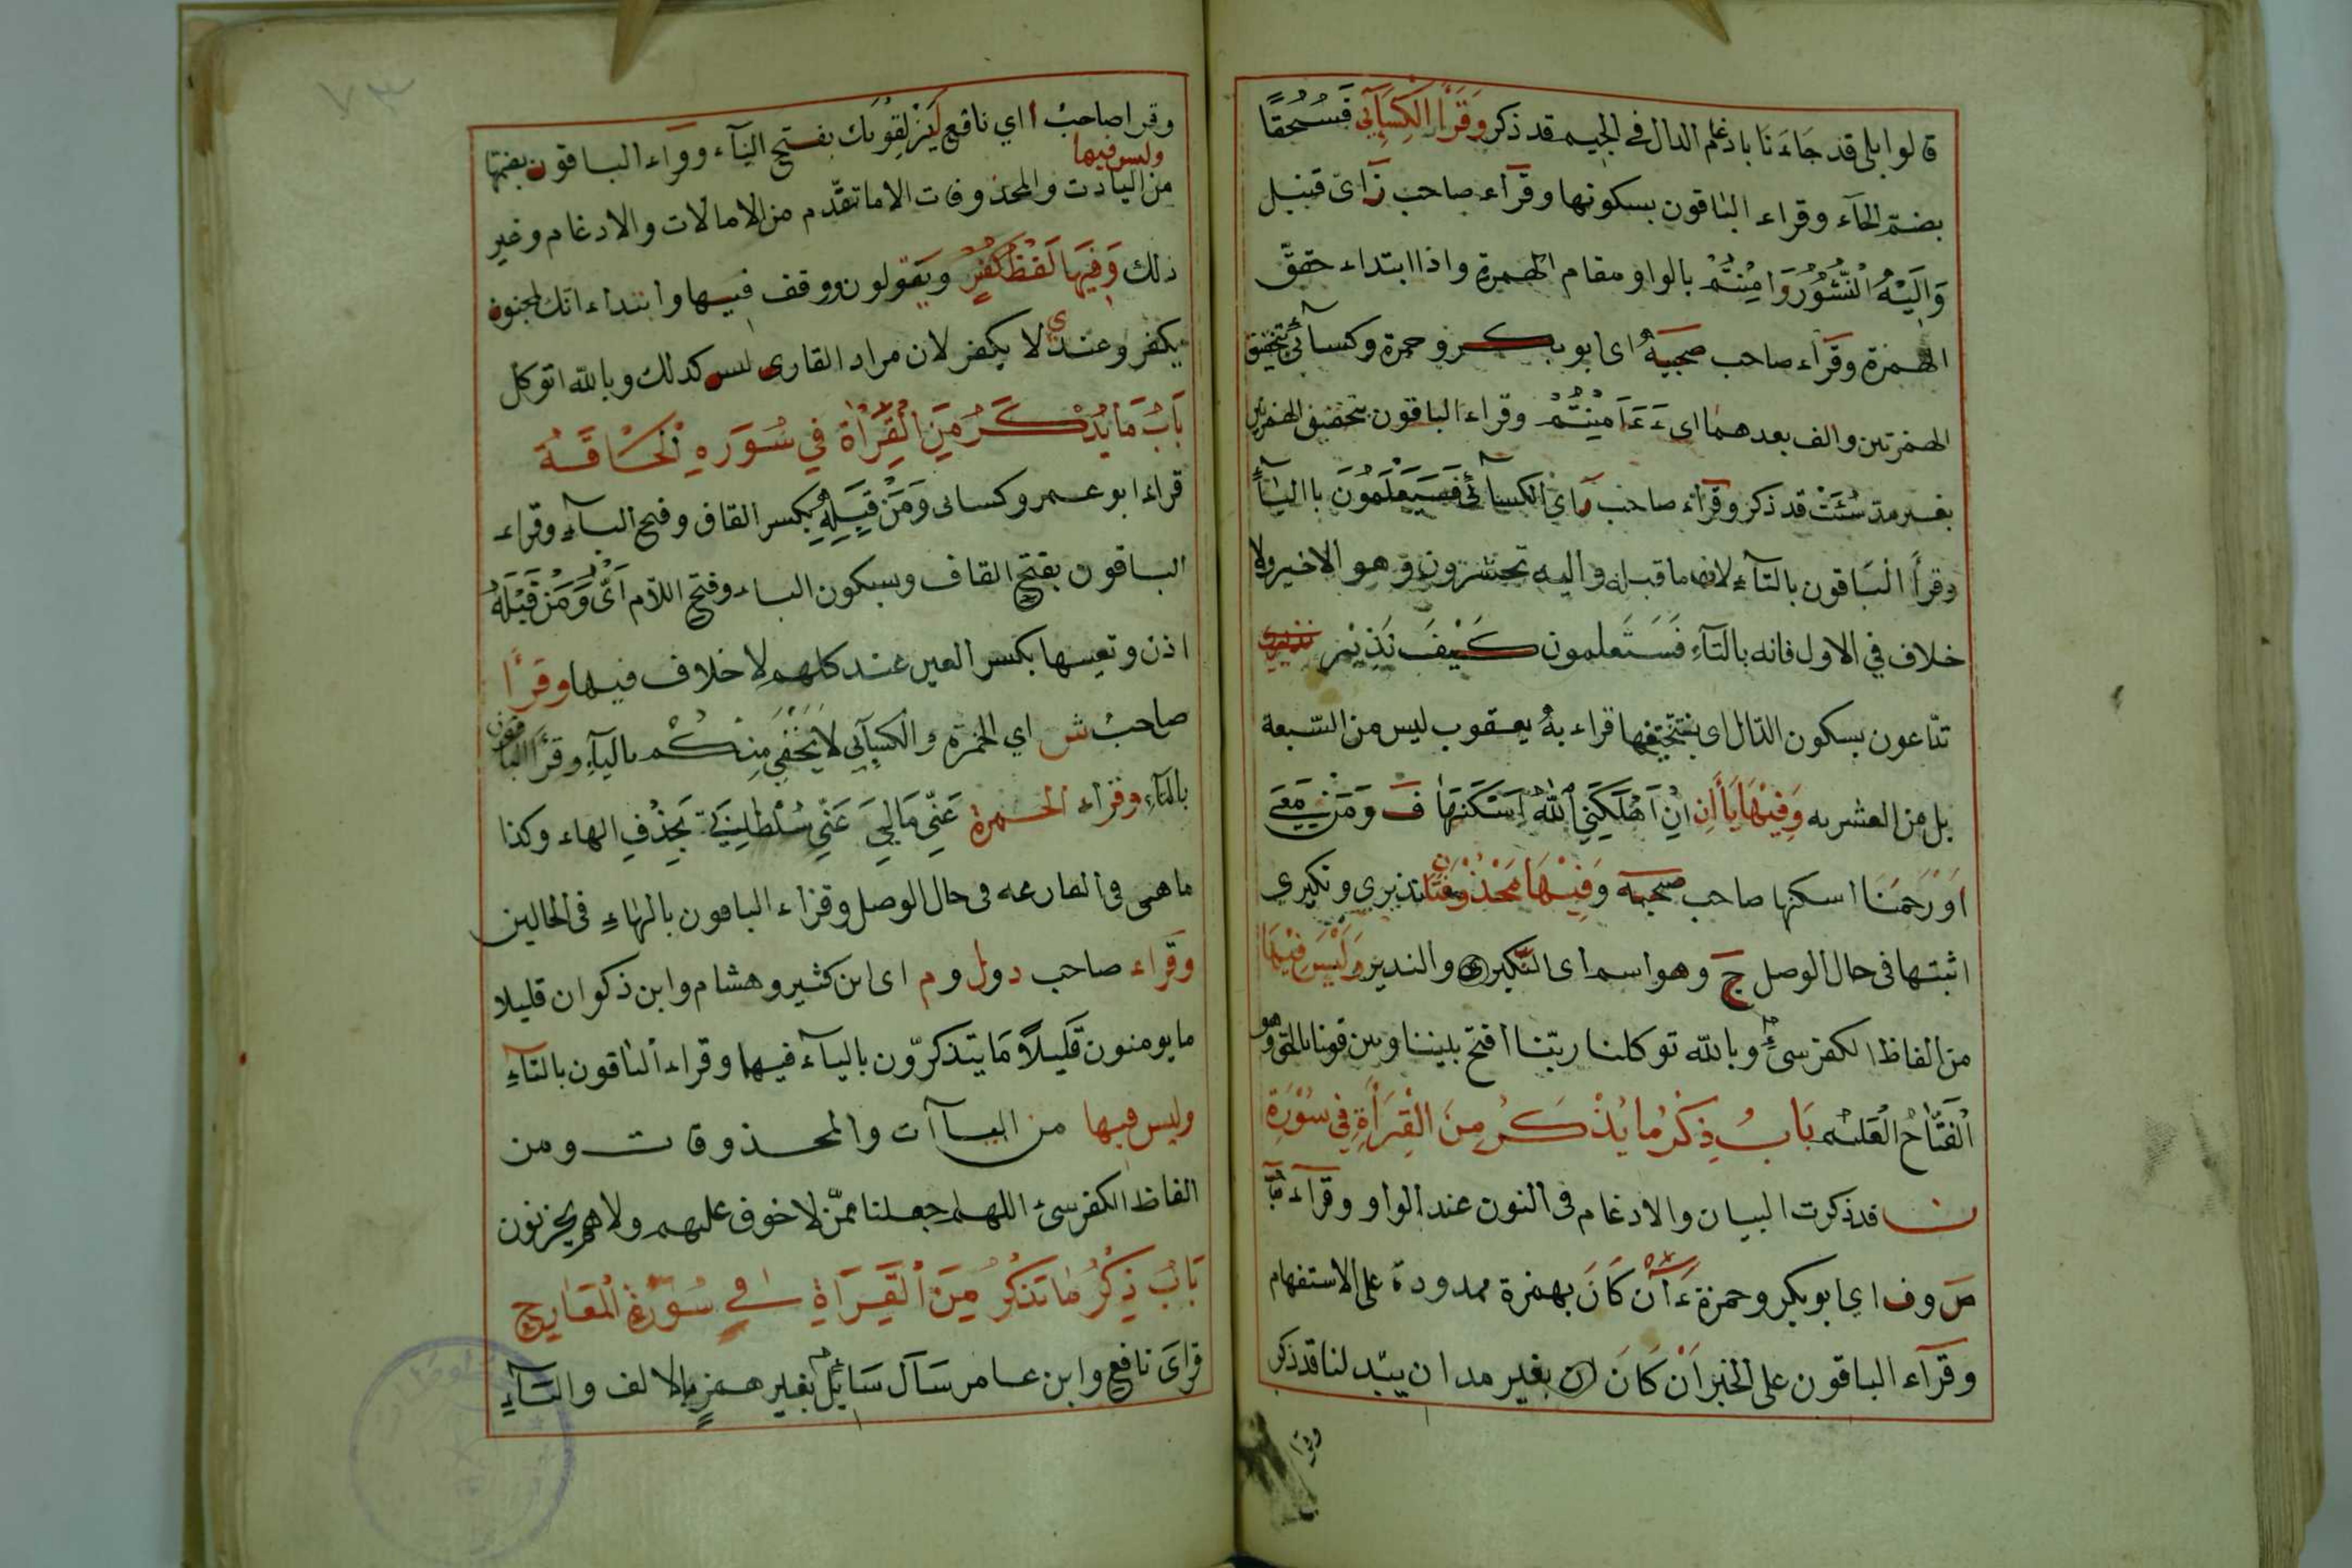 قالوا بلى قد جَاءَنَا بادغام الدال في الجيم قد ذكر وَقَرَأَ الكِسَآئِي فَسُحُقًا
بضم الحآء وقراء الباقون بسكونها وقرآء صاحب ز اى قنبل
وَاِلَيْهِ النُّشُورُ وَامِنْتُمْ بالواو مقام الهمزة واذا ابتداء حقق
الهمزة وقرآء صاحب صحبة اى ابو بكر و حمزة وكسائى بتحقيق
الهمزتين والف بعدهما اى ءَءَامِنْتُمْ وقراء الباقون بتحقيق الهمزتين
بغير مد سُئَتْ قد ذكر وقرآء صاحب ر اى الكسائى فَسَيَعْلَمُونَ بااليآء
وقرأ البَاقون بالتآءِ لان ما قبله واليه تحشرون وهو الاخير ولا
خلاف في الاول فانه بالتآءِ فَسَتَعلمون كَيْفَ نَذِيْر
تدّاعون بسكون الدّال اى بتخفيفها قراء به يعقوب ليس من السّبعة
بل من العشره وَفِيْهَا يَاأن اِنْ اَهْلَكَنِيَ اللهُ اَسْكَنَهَا ف وَمَنْ مَعِيَ
اَوْرَحِمَنَا اسكنها صاحب صحبة وَفِيْهَا مَحْذُوْفَتَان نذيرى ونكيرى
اثبتها فى حال الوصل ج وهو اسم اى النّكير والنذير وَلَيْسَ فِيْهَا
من الفاظ الكفر سىءٌ وبالله توكلنا ربّنا افتح بيننا وبين قومنا بالحق وهو
اَلْفَتَّاحُ الْعَلِيْم بَابُ ذِكْرُ مَا يُذْكَرُ مِنَ الْقِرَأَةِ فِي سُوْرَةِ
ن قد ذكرت البيان والادغام فى النون عند الواو وقرآء
ص وف اي ابو بكر وحمزة ءَاَنْ كَانَ بهمزة ممدودة على الاستفهام
وقرآء الباقون على الخبر اَنْ كَانَ بغير مد ان يبّدلنا قد ذكر
وقرا
٧٣
وقرا صاحبُ ا اي نافع لَيَزْلِقُونَك بفتح اليآء وقرآء الباقون بضمها
وليس فيها
من اليآدت والمحذوفات الا ما تقدّم من الامالات والادغام وغير
ذلك وَفِيْهَا لَفْظُ كُفْرٍ ويَقولون ووقف فيها وابتداء انك لمجنون
يكفر وعندي لا يكفر لان مراد القارى ليس كذلك وبالله اتوكل
بَابُ مَا يُذْكَرُ مِنَ الْقِرَأَةِ فِي سُورَةِ الْحَاقَّةْ
قراء ابو عمر وكسائى وَمَنْ قِبَلَهُ بكسر القاف وفتح البآء وقراء
الباقون بفتح القاف وسكون الباء وفتح اللام اَىْ وَمَنْ قَبْلَهُ
اذن وتعيها بكسر العين عند كلهم لا خلاف فيها وقَرَأَ
صاحبُ ش اي الحمزة والكسآئي لاَ يَخْفَي مِنْكُمْ باليآءِ وقرأ الباقون
بالتآء وقراء الحمزة عَنِّي مَالِيَ عَنِّي سُلْطَانِيَ بحِذْفِ الهاء وكذا
ماهى فى القارعه فى حال الوصل وقراء الباقون بالهاءِ فى الحالين
وقراء صاحب د ول وم اى ابن كثير وهشام وابن ذكوان قليلا
ما يومنون قَلِيلاً مَا يتذكرّون باليآء فيها وقراء الباقون بالتآءِ
وليس فيها من اليآآت والمحذوفات ومن
الفاظ الكفر سىء اللهم اجعلنا ممّن لا خوف عليهم ولا هم يحزنون
بَابُ ذِكْرُ مَا تذكرُ مِنَ الْقِرَآةِ فِي سُوْرَةِ الْمَعَارِج
قراى نافع وابن عامر سَآل سَائِلٌ بغير همزٍ بالالف والتآءِ